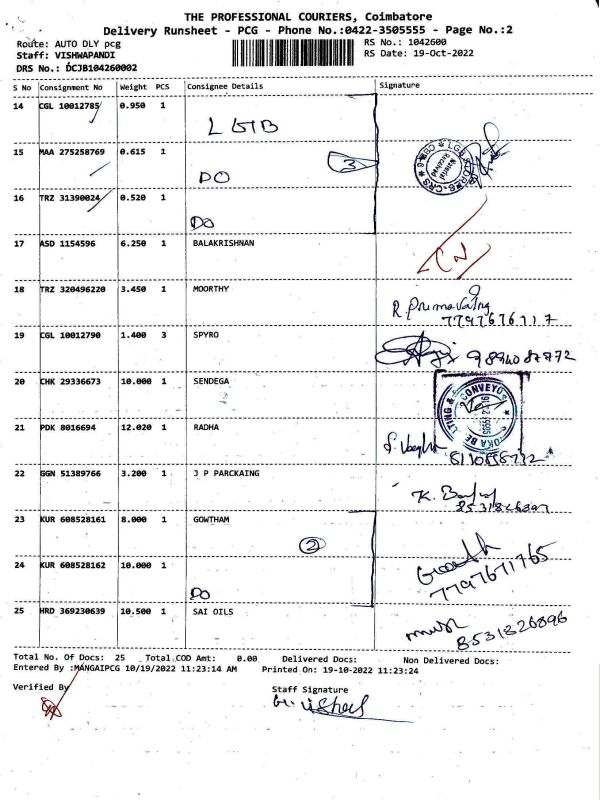 THE PROFESSIONAL COURIERS, Coimbatore
Delivery Runsheet - PCG - Phone No.:0422-3505555 - Page No.:2
Route: AUTO DLY pcg RS No.: 1042600
Staff: VISHWAPANDI RS Date: 19-Oct-2022
DRS No.: DCJB104260002
S No Consignment No Weight PCS Consignee Details Signature
14 CGL 10012785 0.950 1
L GTB
15 MAA 275258769 0.615 1
DO 3
16 TRZ 31390024 0.520 1
DO
17 ASD 1154596 6.250 1 BALAKRISHNAN
18 TRZ 320496220 3.450 1 MOORTHY
19 CGL 10012790 1.400 3 SPYRO
9894087772
20 CHK 29336673 10.000 1 SENDEGA
21 PDK 8016694 12.020 1 RADHA
22 GGN 51389766 3.200 1 J P PARCKAING
23 KUR 608528161 8.000 1 GOWTHAM
2
24 KUR 608528162 10.000 1
DO 7797671765
25 HRD 369230639 10.500 1 SAI OILS
8531826896
Total No. Of Docs: 25 Total COD Amt: 0.00 Delivered Docs: Non Delivered Docs:
Entered By :MANGAIPCG 10/19/2022 11:23:14 AM Printed On: 19-10-2022 11:23:24
Verified By Staff Signature